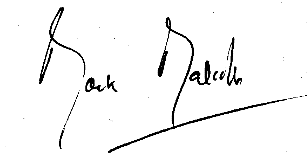 Mark Malcolm